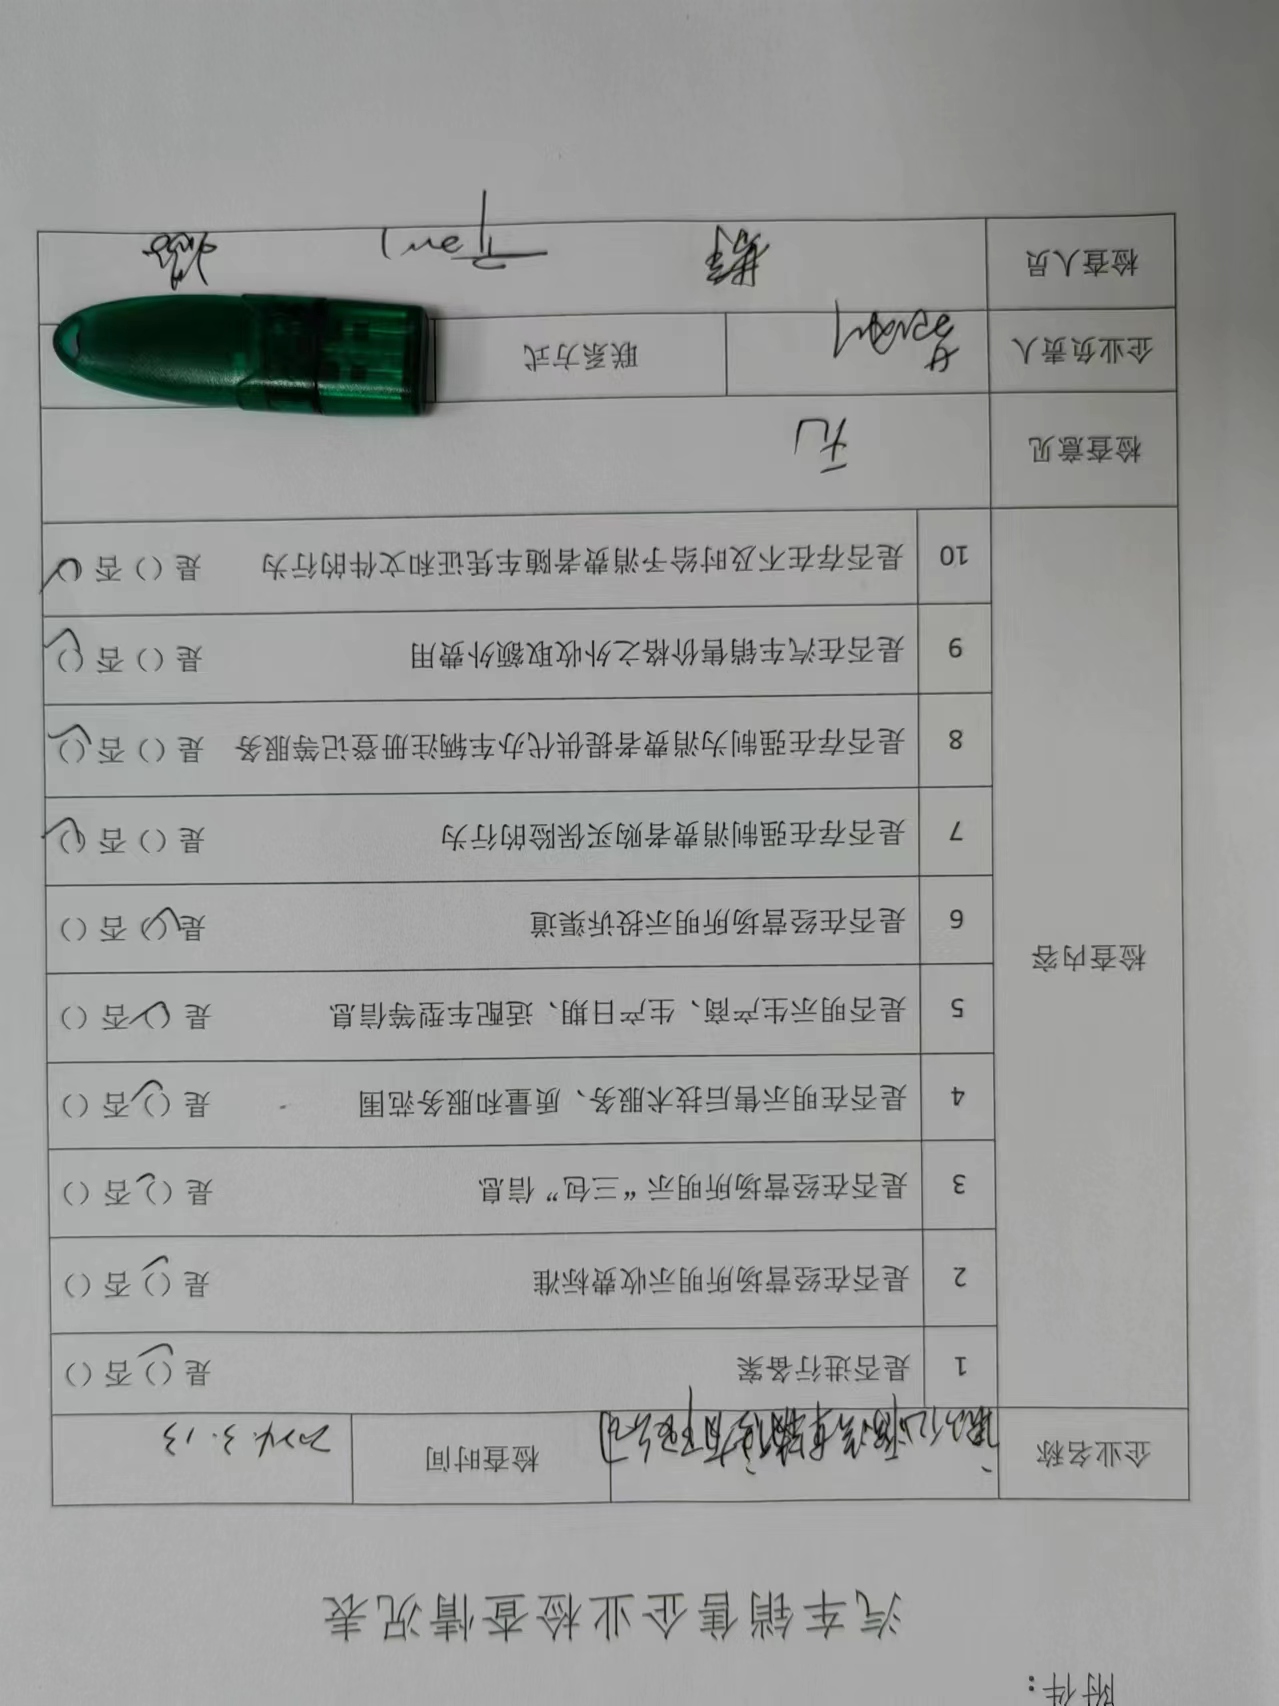 附件：
汽车销售企业检查情况表
企业名称 汽车销售有限公司 检查时间 2024.3.13
检查内容
1 是否进行备案 是（）否（）
2 是否在经营场所明示收费标准 是（）否（）
3 是否在经营场所明示“三包”信息 是（）否（）
4 是否在明示售后技术服务、质量和服务范围 是（）否（）
5 是否明示生产商、生产日期、适配车型等信息 是（）否（）
6 是否在经营场所明示投诉渠道 是（）否（）
7 是否存在强制消费者购买保险的行为 是（）否（）
8 是否存在强制为消费者提供代办车辆注册登记等服务 是（）否（）
9 是否在汽车销售价格之外收取额外费用 是（）否（）
10 是否存在不及时给予消费者随车凭证和文件的行为 是（）否（）
检查意见 无
企业负责人 联系方式
检查人员